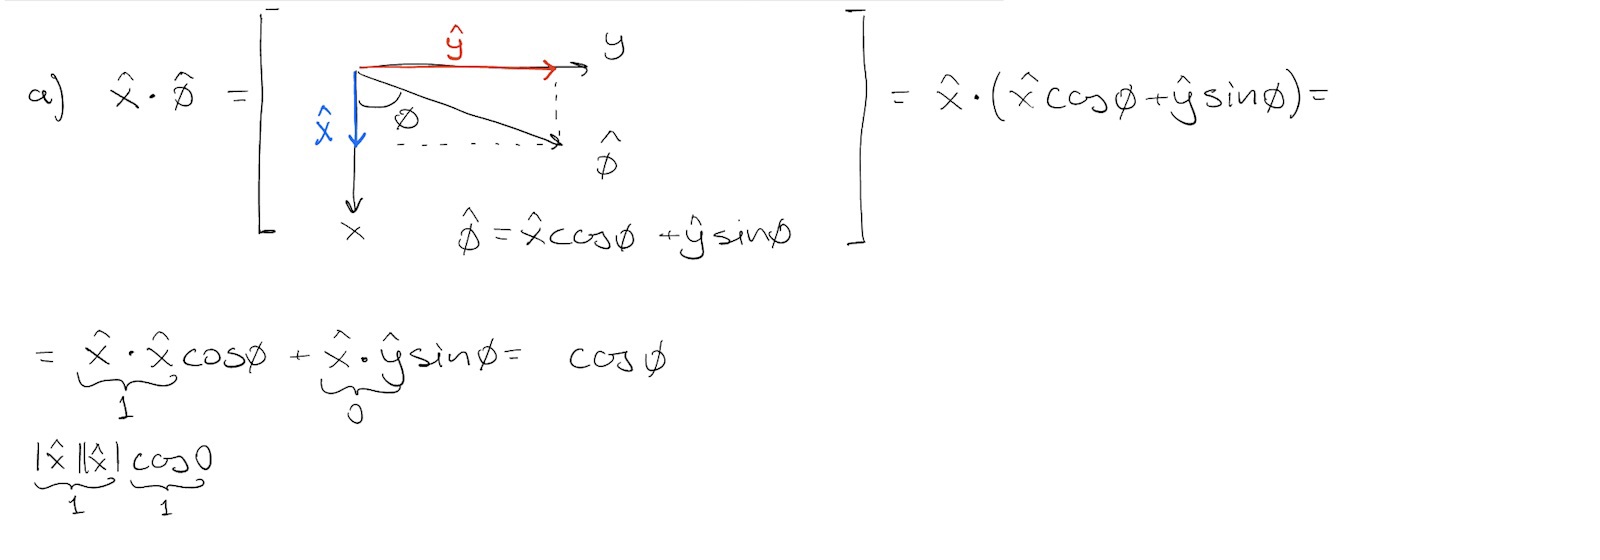 a) x̂ · ϕ̂ = [ ŷ y x̂ ϕ ϕ̂ x ϕ̂ = x̂ cosϕ + ŷ sinϕ ] = x̂ · (x̂ cosϕ + ŷ sinϕ) =
= x̂ · x̂ cosϕ + x̂ · ŷ sinϕ = cosϕ
1 0
|x̂||x̂| cos0
1 1